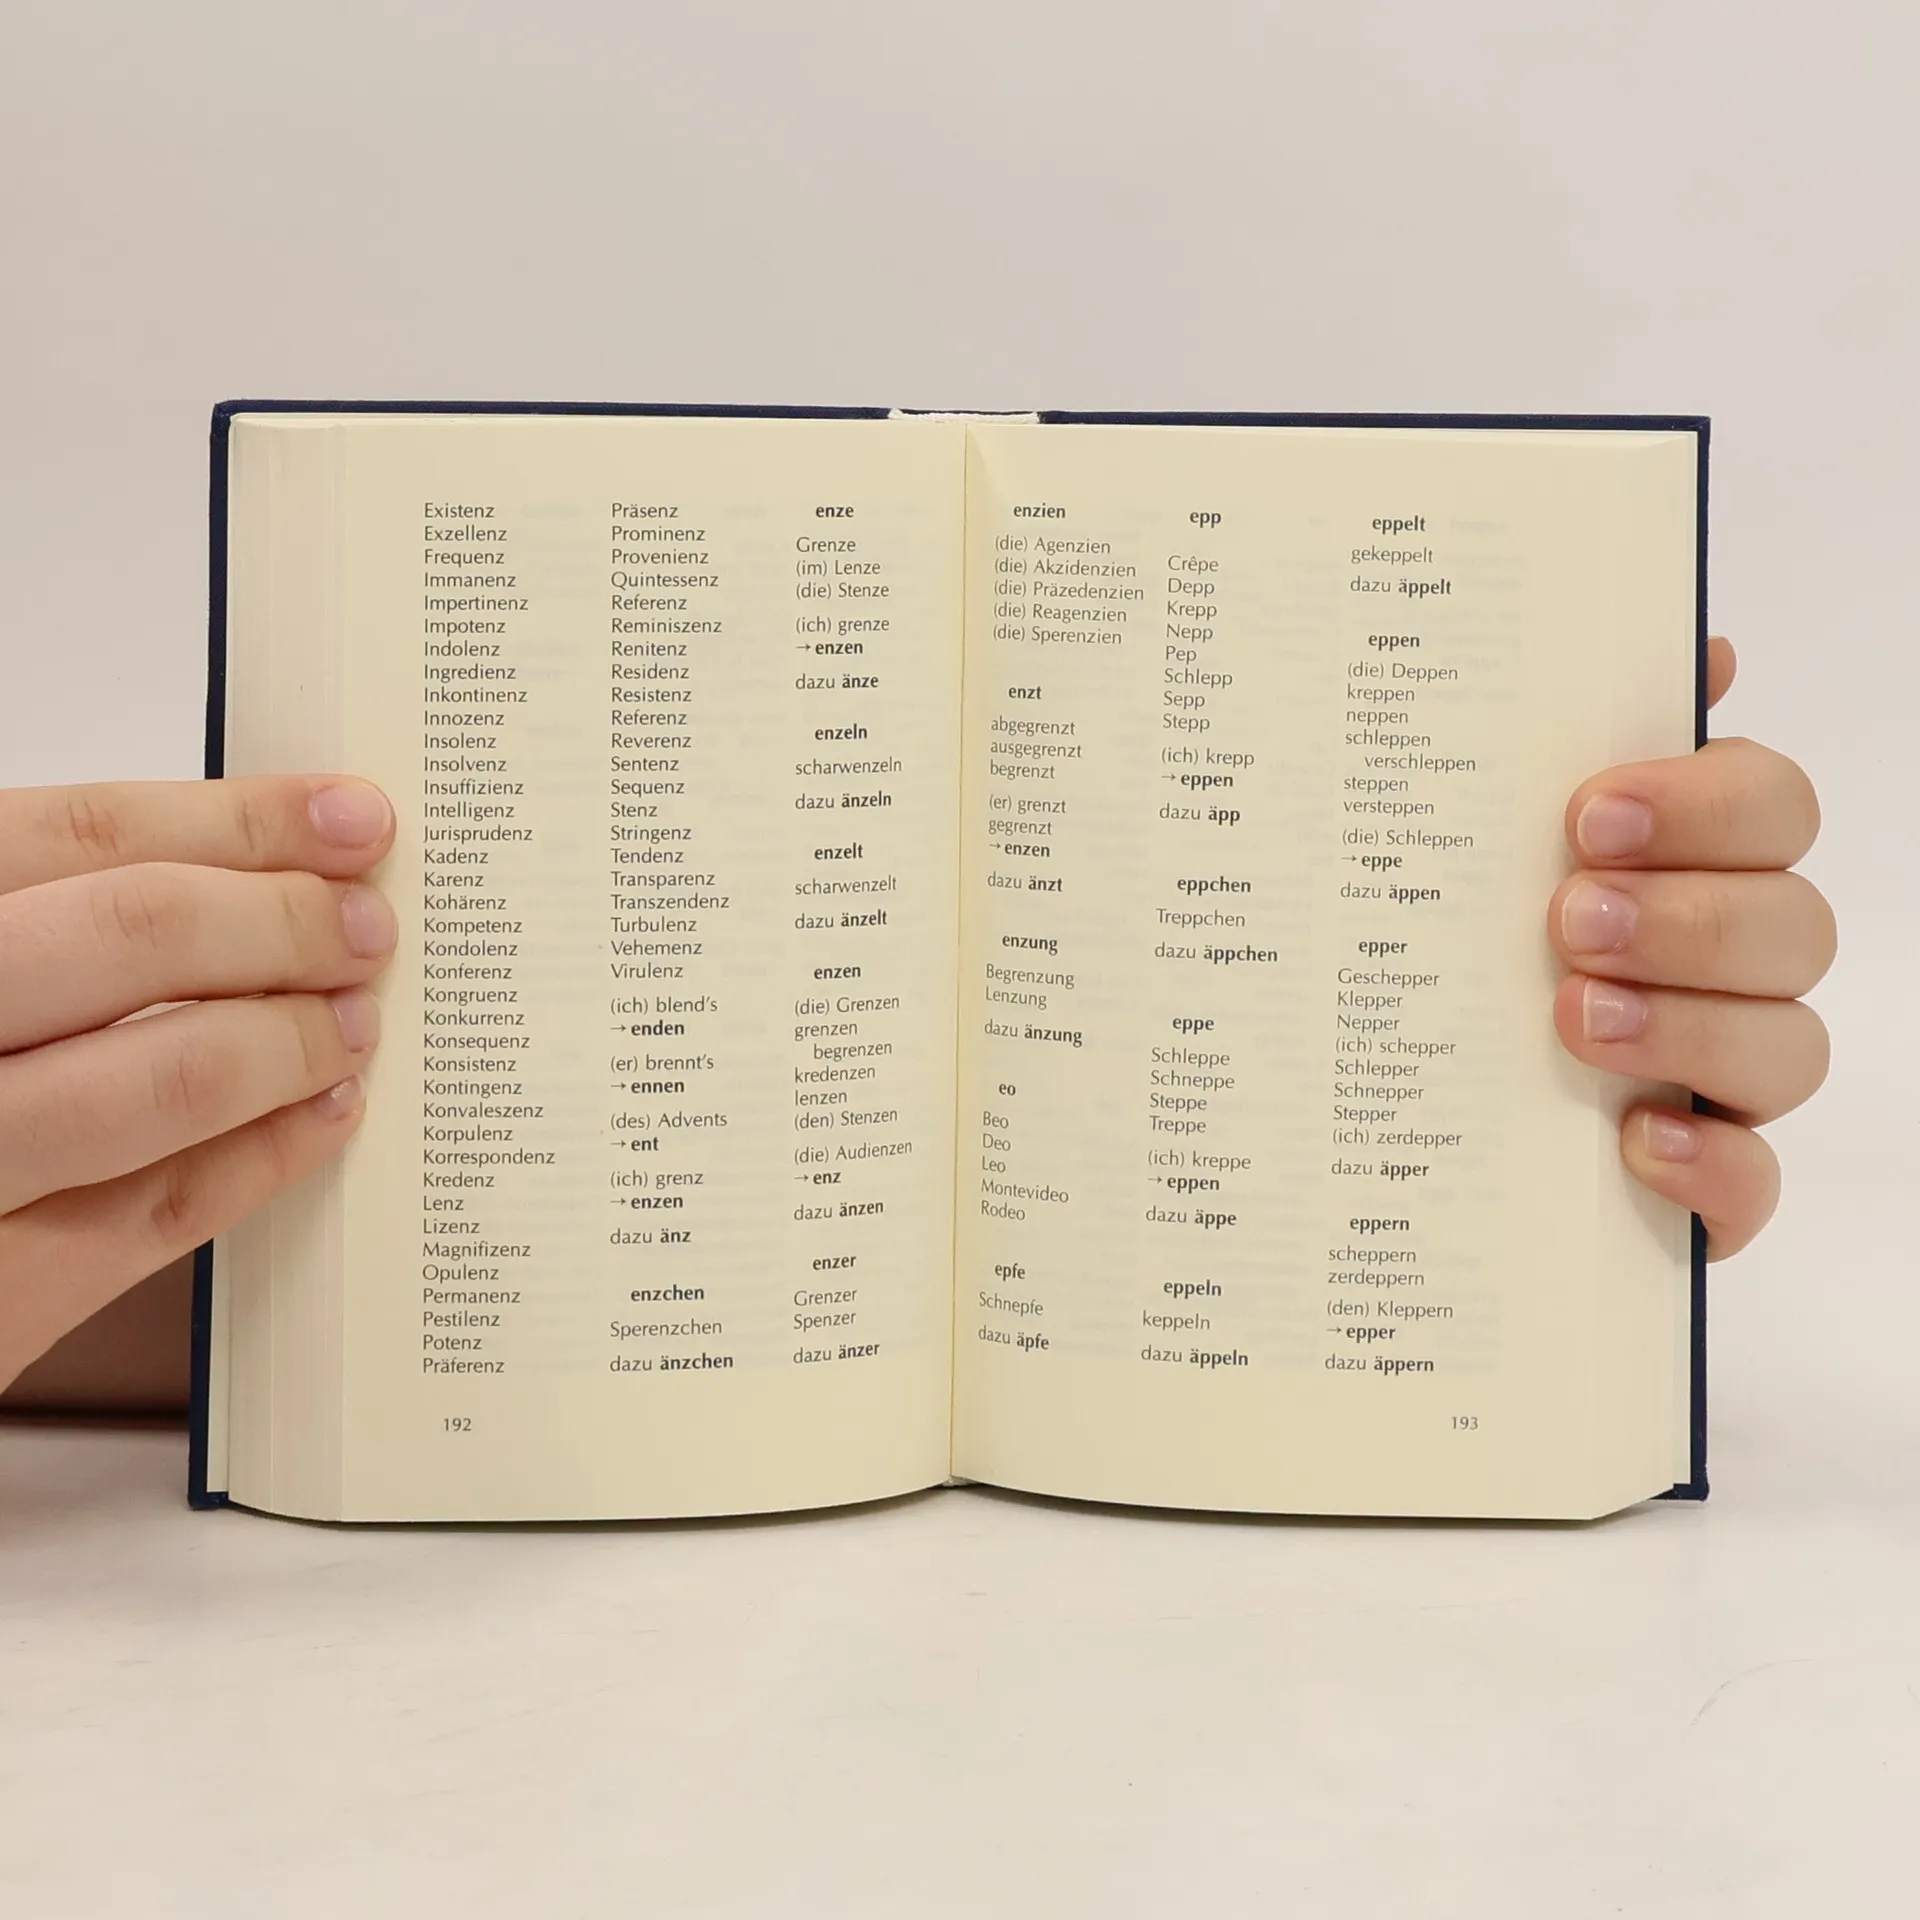 Existenz
Exzellenz
Frequenz
Immanenz
Impertinenz
Impotenz
Indolenz
Ingredienz
Inkontinenz
Innozenz
Insolenz
Insolvenz
Insuffizienz
Intelligenz
Jurisprudenz
Kadenz
Karenz
Kohärenz
Kompetenz
Kondolenz
Konferenz
Kongruenz
Konkurrenz
Konsequenz
Konsistenz
Kontingenz
Konvaleszenz
Korpulenz
Korrespondenz
Kredenz
Lenz
Lizenz
Magnifizenz
Opulenz
Permanenz
Pestilenz
Potenz
Präferenz
Präsenz
Prominenz
Provenienz
Quintessenz
Referenz
Reminiszenz
Renitenz
Residenz
Resistenz
Referenz
Reverenz
Sentenz
Sequenz
Stenz
Stringenz
Tendenz
Transparenz
Transzendenz
Turbulenz
Vehemenz
Virulenz
(ich) blend's
→ enden
(er) brennt's
→ ennen
(des) Advents
→ ent
(ich) grenz
→ enzen
dazu änz
enzchen
Sperenzchen
dazu änzchen
enze
Grenze
(im) Lenze
(die) Stenze
(ich) grenze
→ enzen
dazu änze
enzeln
scharwenzeln
dazu änzeln
enzelt
scharwenzelt
dazu änzelt
enzen
(die) Grenzen
grenzen
begrenzen
kredenzen
lenzen
(den) Stenzen
(die) Audienzen
→ enz
dazu änzen
enzer
Grenzer
Spenzer
dazu änzer
192
enzien
(die) Agenzien
(die) Akzidenzien
(die) Präzedenzien
(die) Reagenzien
(die) Sperenzien
enzt
abgegrenzt
ausgegrenzt
begrenzt
(er) grenzt
gegrenzt
→ enzen
dazu änzt
enzung
Begrenzung
Lenzung
dazu änzung
eo
Beo
Deo
Leo
Montevideo
Rodeo
epfe
Schnepfe
dazu äpfe
epp
Crêpe
Depp
Krepp
Nepp
Pep
Schlepp
Sepp
Stepp
(ich) krepp
→ eppen
dazu äpp
eppchen
Treppchen
dazu äppchen
eppe
Schleppe
Schneppe
Steppe
Treppe
(ich) kreppe
→ eppen
dazu äppe
eppeln
keppeln
dazu äppeln
eppelt
gekeppelt
dazu äppelt
eppen
(die) Deppen
kreppen
neppen
schleppen
verschleppen
steppen
versteppen
(die) Schleppen
→ eppe
dazu äppen
epper
Geschepper
Klepper
Nepper
(ich) schepper
Schlepper
Schnepper
Stepper
(ich) zerdepper
dazu äpper
eppern
scheppern
zerdeppern
(den) Kleppern
→ epper
dazu äppern
193